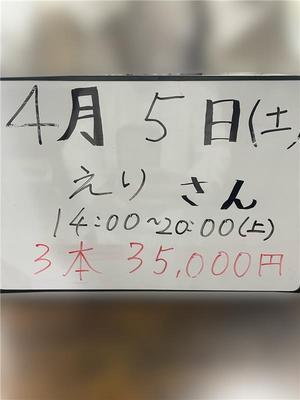 4月5日(土)
えりさん
14:00~20:00(土)
3本 35,000円